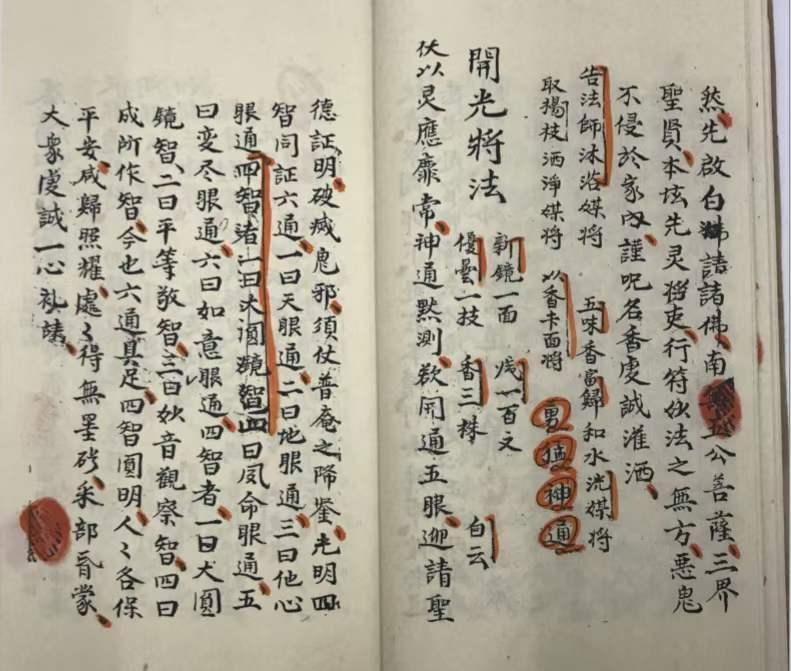 然先啟白拜請諸佛南無公菩薩三界
聖賢本坛先灵将吏行符妙法之無方惡鬼
不侵於家内謹呪名香虔誠灌洒
告法師沐浴媒將 五味香富歸和水洗媒將
取揚枝洒淨媒將 以香卡面將 勇猛神通
開光將法 新鏡一面 戋一百文
優曇一技 香三株 白云
伏以灵應靡常神通默測欲開通五眼迎請聖
德証明破滅鬼邪須仗普庵之降鉴光明四
智同証六通一曰天眼通二曰地眼通三曰他心
眼通四智者一曰大圓鏡智四曰風命眼通五
曰变尽眼通六曰如意眼通四智者一曰大圓
鏡智二曰平等敬智三曰妙音觀察智四曰
成所作智今也六通具足四智圓明人〻各保
平安咸歸照耀處〻得無罣碍釆部冐蒙
大衆虔誠一心礼請